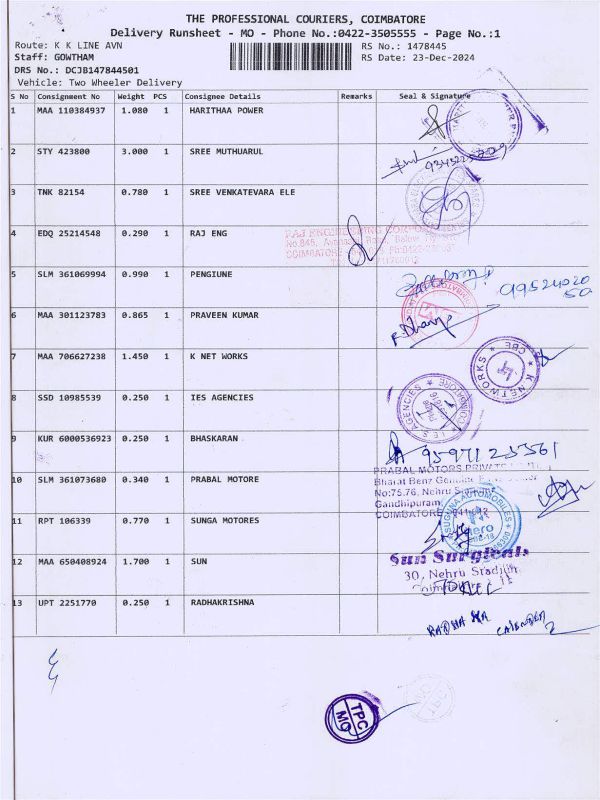 THE PROFESSIONAL COURIERS, COIMBATORE
Delivery Runsheet - MO - Phone No.:0422-3505555 - Page No.:1
Route: K K LINE AVN RS No.: 1478445
Staff: GOWTHAM RS Date: 23-Dec-2024
DRS No.: DCJB147844501
Vehicle: Two Wheeler Delivery
S No Consignment No Weight PCS Consignee Details Remarks Seal & Signature
1 MAA 110384937 1.080 1 HARITHAA POWER
2 STY 423800 3.000 1 SREE MUTHUARUL
3 TNK 82154 0.780 1 SREE VENKATEVARA ELE
4 EDQ 25214548 0.290 1 RAJ ENG
RAJ ENGINEERING CORPORATION
5 SLM 361069994 0.990 1 PENGIUNE
99524020
50
6 MAA 301123783 0.865 1 PRAVEEN KUMAR
7 MAA 706627238 1.450 1 K NET WORKS
K NETWORKS CBE
8 SSD 10985539 0.250 1 IES AGENCIES
I.E.S AGENCIES COIMBATORE
9 KUR 6000536923 0.250 1 BHASKARAN
10 SLM 361073680 0.340 1 PRABAL MOTORE
PRABAL MOTORS PRIVATE
Bharat Benz
No:75,76, Nehru
Gandhipuram,
COIMBATORE
11 RPT 106339 0.770 1 SUNGA MOTORES
SUGUNA AUTOMOBILES
Hero
12 MAA 650408924 1.700 1 SUN
Sun Surgicals
30, Nehru Stadium
13 UPT 2251770 0.250 1 RADHAKRISHNA
TPC
MO